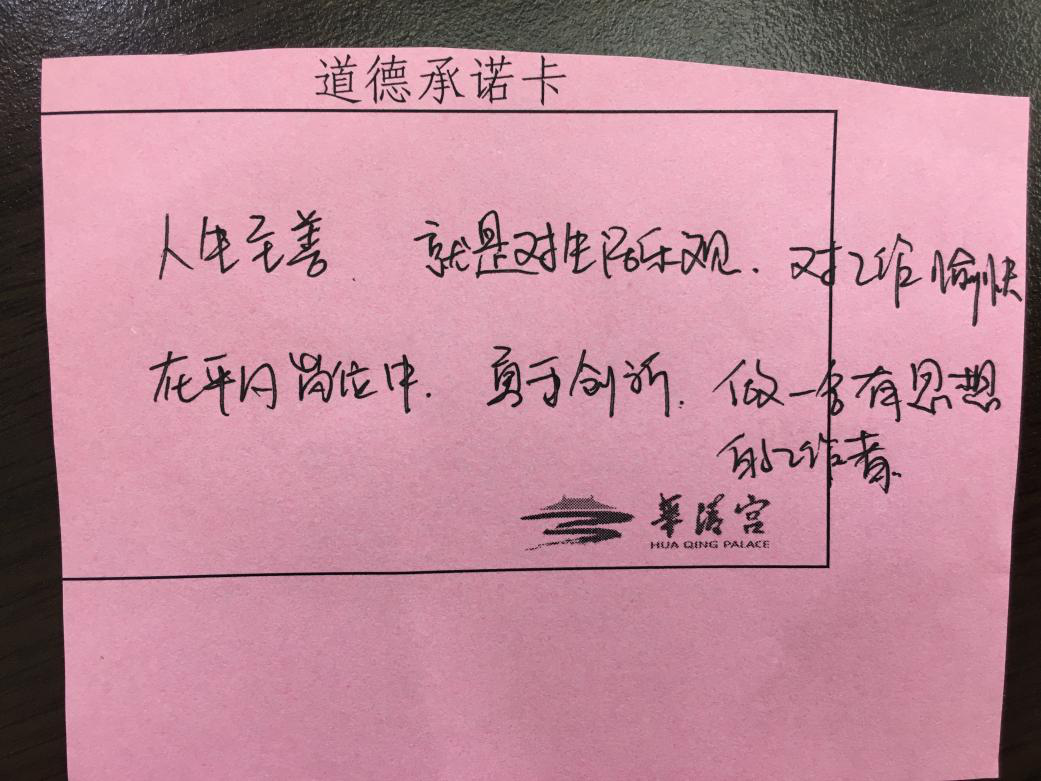 道德承诺卡
人生至善 就是对生活乐观. 对工作愉快
在平凡岗位中. 勇于创新. 做一名有思想
的工作者.
華清宫
HUA QING PALACE